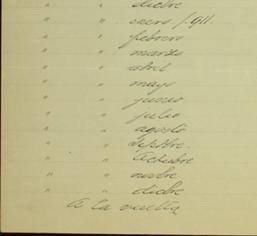 " " dicbre
" " enero 1911.
" " febrero
" " marzo
" " abril
" " mayo
" " junio
" " julio
" " agosto
" " Septbre.
" " Octubre
" " novbre
" " dicbre
A la vuelta